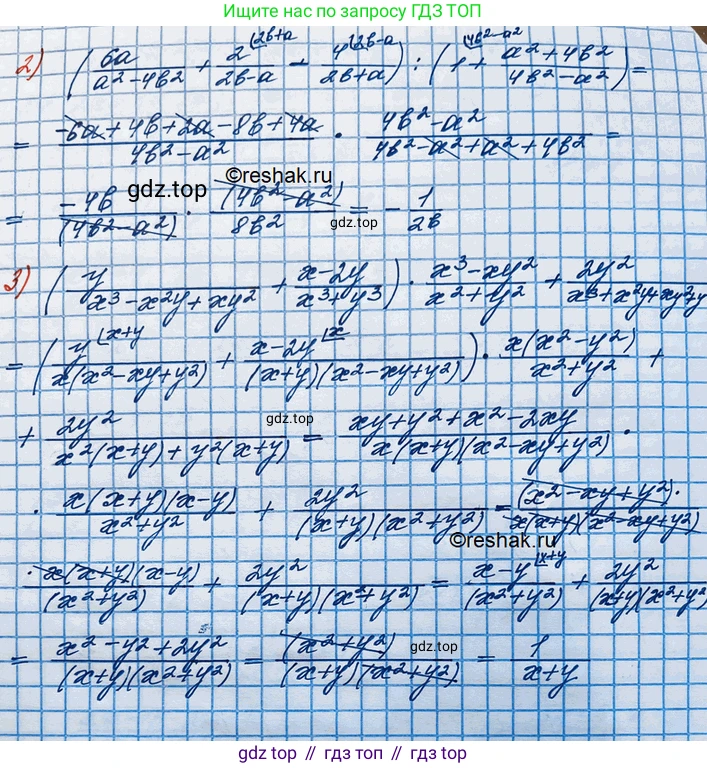 Ищите нас по запросу ГДЗ ТОП
2) (6a/(a² - 4b²) + 2⌊2b+a/(2b-a) - 4⌊2b-a/(2b+a)) : (1⌊4b²-a² + (a² + 4b²)/(4b² - a²)) =
= (-6a + 4b + 2a - 8b + 4a)/(4b² - a²) · (4b² - a²)/(4b² - a² + a² + 4b²) =
©reshak.ru
gdz.top
= -4b/(4b² - a²) · (4b² - a²)/8b² = - 1/2b
gdz.top
3) (y/(x³ - x²y + xy²) + (x - 2y)/(x³ + y³)) · (x³ - xy²)/(x² + y²) + 2y²/(x³ + x²y + xy² + y
= (y⌊x+y/(x(x² - xy + y²)) + (x - 2y)⌊x/((x+y)(x² - xy + y²))) · x(x² - y²)/(x² + y²) +
gdz.top
+ 2y²/(x²(x+y) + y²(x+y)) = (xy + y² + x² - 2xy)/(x(x+y)(x² - xy + y²)) ·
· x(x+y)(x-y)/(x² + y²) + 2y²/((x+y)(x² + y²)) = (x² - xy + y²) ·/(x(x+y)(x² - xy + y²))
©reshak.ru
· x(x+y)(x-y)/(x² + y²) + 2y²/((x+y)(x² + y²)) = (x - y)⌊x+y/(x² + y²) + 2y²/((x+y)(x² + y²)
= (x² - y² + 2y²)/((x+y)(x² + y²)) = (x² + y²)/((x+y)(x² + y²)) = 1/(x+y)
gdz.top
gdz.top // гдз.топ // gdz.top